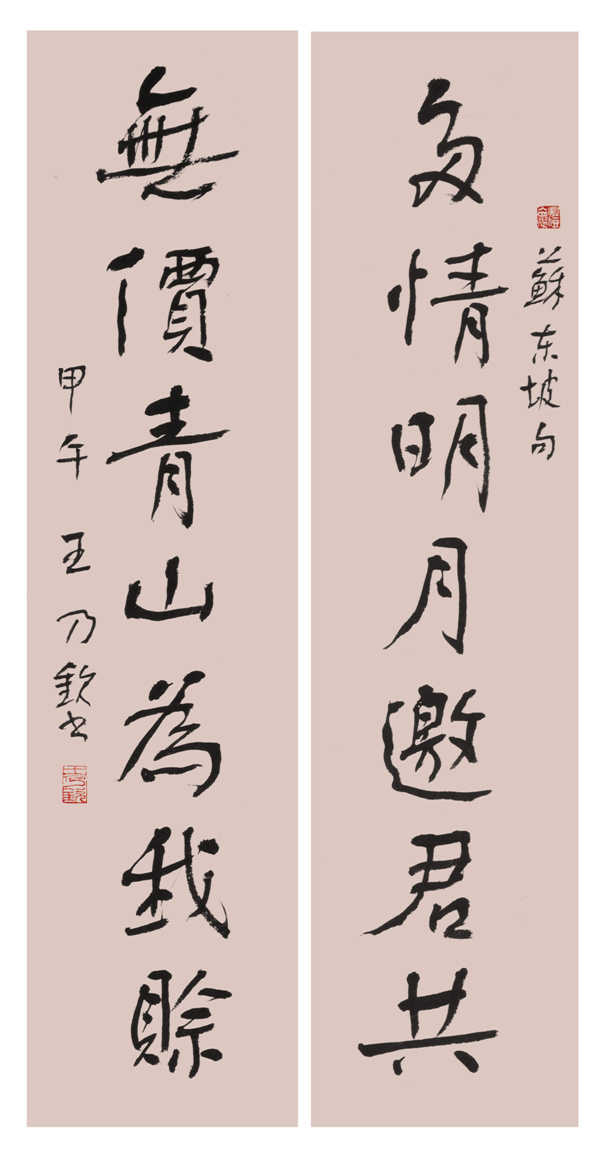 蘇东坡句
多情明月邀君共
無價青山為我賒
甲午 王乃钦书